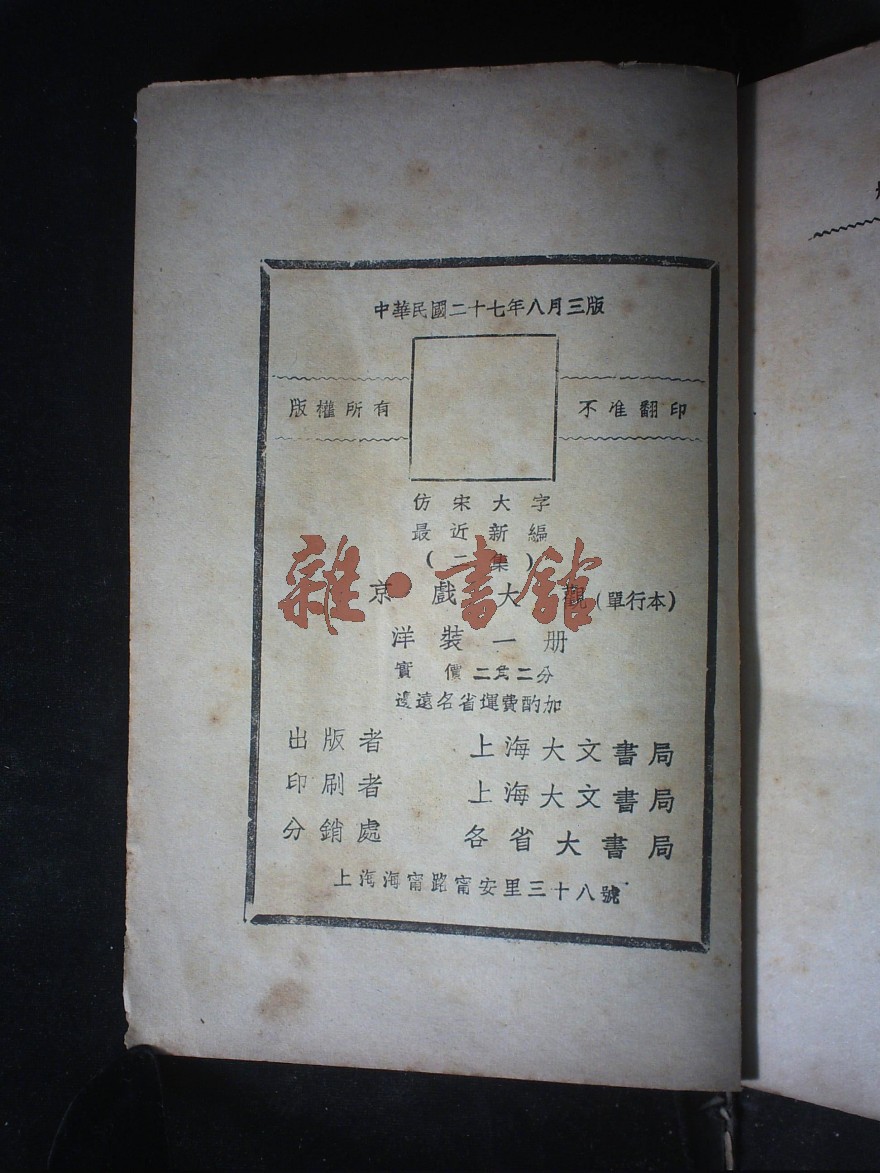 中華民國二十七年八月三版
版權所有 不准翻印
仿宋大字
最近新編
(二集)
京戲大觀(單行本)
雜·書館
洋裝一册
實價二角二分
邊遠各省運費酌加
出版者 上海大文書局
印刷者 上海大文書局
分銷處 各省大書局
上海海甯路甯安里三十八號